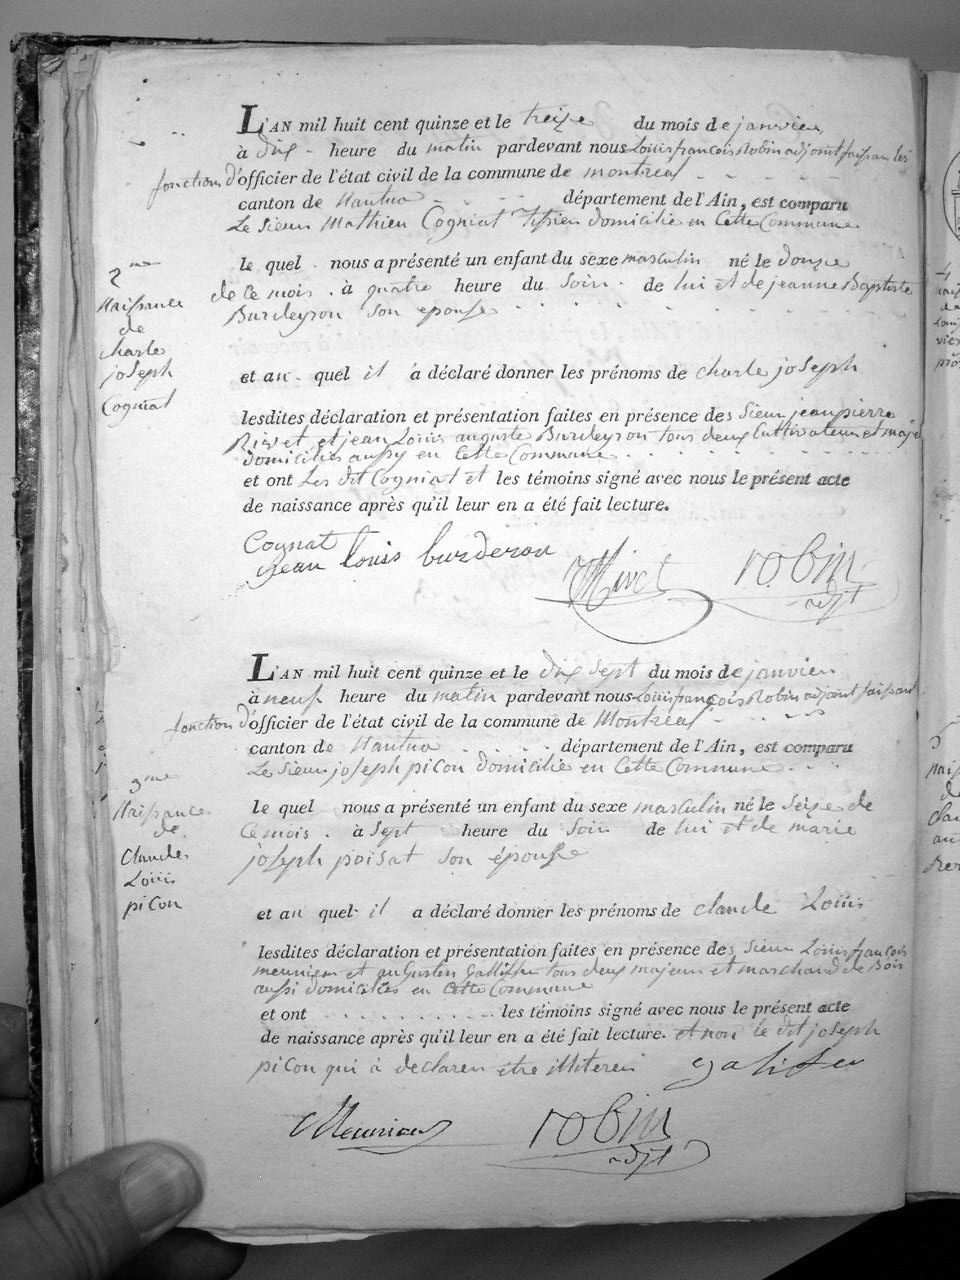 L'AN mil huit cent quinze et le treize du mois de janvier
à dix heure du matin pardevant nous Louis françois Robin adjoint faisan les
fonction d'officier de l'état civil de la commune de montreal
canton de Nantua département de l'Ain, est comparu
Le Sieur Mathieu Cogniat domicilié en Cette Commune
le quel nous a présenté un enfant du sexe masculin né le douze
de Ce mois à quatre heure du Soir de lui et de jeanne Baptiste
Burdeyron Son epouse
2me
Naissance
de
charle
joseph
Cogniat
et au quel il a déclaré donner les prénoms de charle joseph
lesdites déclaration et présentation faites en présence des Sieur jean pierre
et jean Louis auguste Burdeyron tous deux Cultivateur et maje
domiciliés aussy en Cette Commune
et ont Les dit Cogniat et les témoins signé avec nous le présent acte
de naissance après qu'il leur en a été fait lecture.
Cognat
jean louis burderon
robin
adjt
L'AN mil huit cent quinze et le dix Sept du mois de janvier
à neuf heure du matin pardevant nous Louis françois Robin adjoint faisant
fonction d'officier de l'état civil de la commune de Montreal
canton de Nantua département de l'Ain, est comparu
Le Sieur joseph picon domicilié en Cette Commune
3me
Naissance
de
Claude
Louis
picon
le quel nous a présenté un enfant du sexe masculin né le Seize de
Ce mois à Sept heure du Soir de lui et de marie
joseph poisat Son épouse
et au quel il a déclaré donner les prénoms de claude Louis
lesdites déclaration et présentation faites en présence des Sieur Louis françois
meunier et augustin tous deux majeur et marchand de Bois
aussi domiciliés en Cette Commune
et ont les témoins signé avec nous le présent acte
de naissance après qu'il leur en a été fait lecture. et non le dit joseph
picon qui à declaren etre illiteren
Meunier
robin
adjt